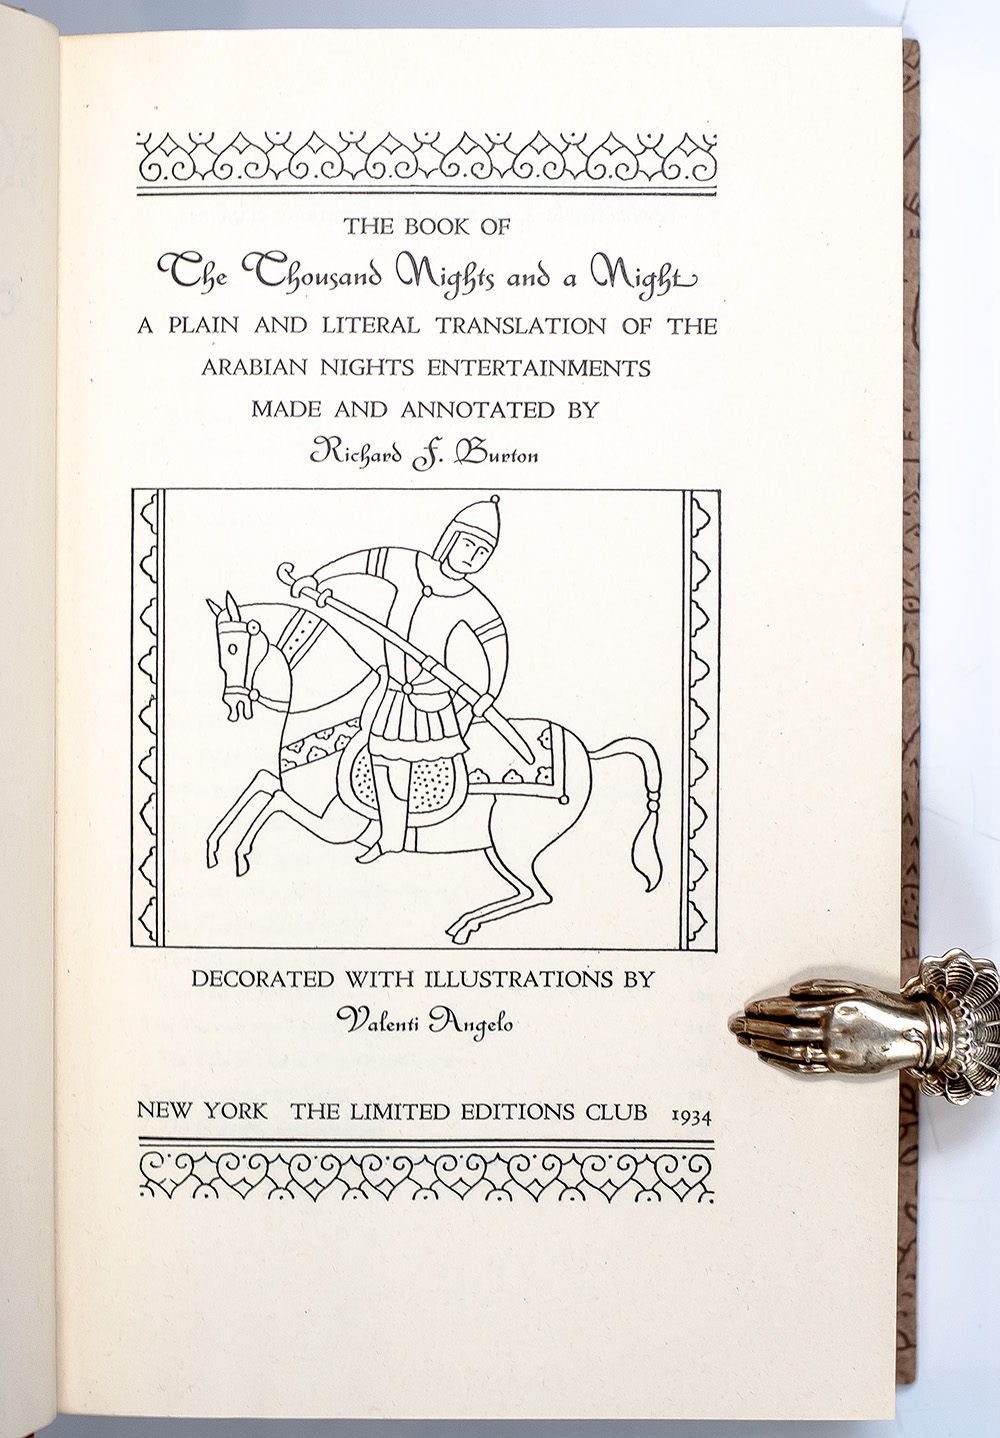 THE BOOK OF
The Thousand Nights and a Night
A PLAIN AND LITERAL TRANSLATION OF THE
ARABIAN NIGHTS ENTERTAINMENTS
MADE AND ANNOTATED BY
Richard F. Burton
DECORATED WITH ILLUSTRATIONS BY
Valenti Angelo
NEW YORK THE LIMITED EDITIONS CLUB 1934